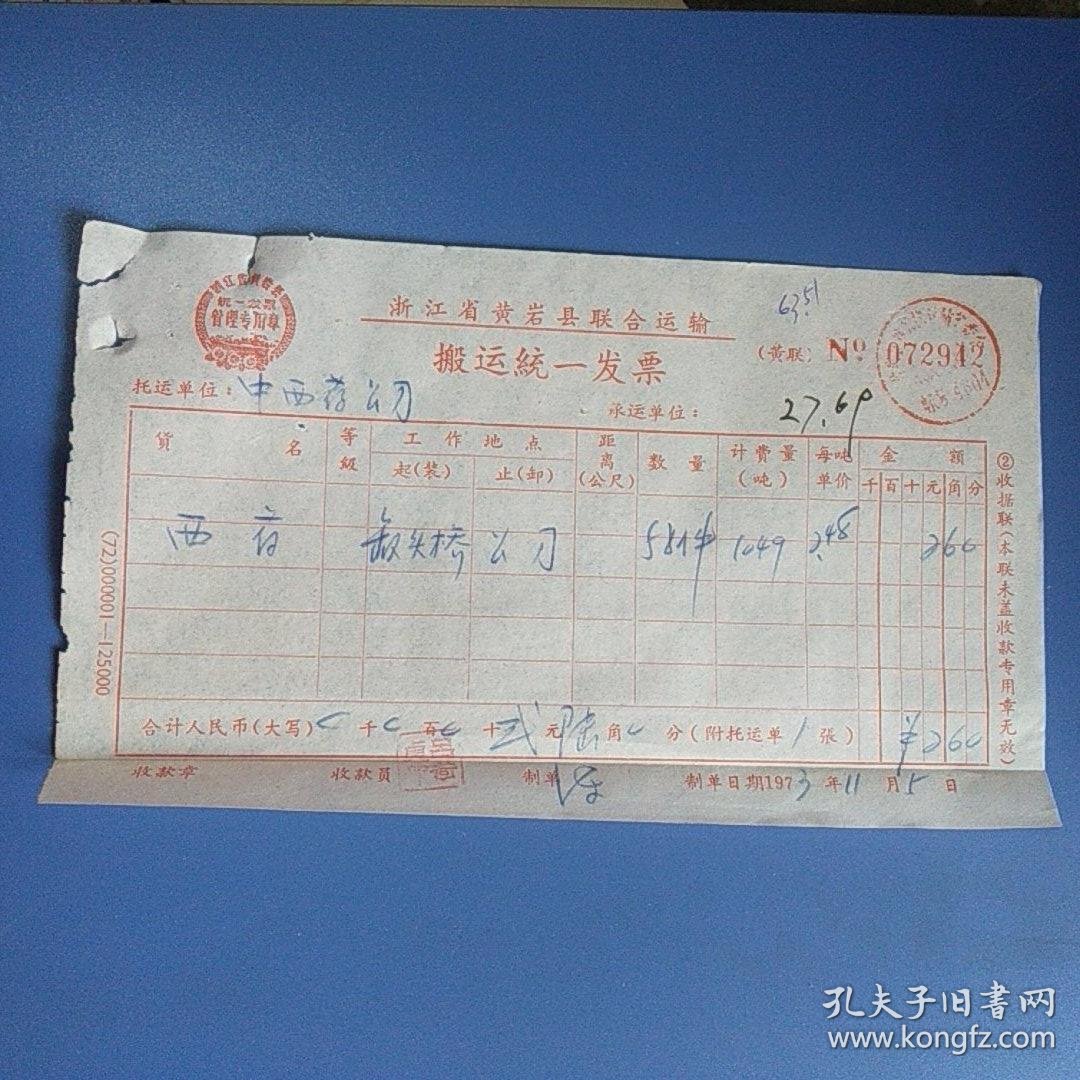 浙江省黄岩县
统一发票
管理专用章
浙江省黄岩县联合运输
63.51
搬运統一发票
(黄联) Nº 072942
托运单位：中西药公司
承运单位：
27.69
貨名 等級 工作地点 距离(公尺) 数量 计費量(吨) 每吨单价 金額
起(装) 止(卸) 千百十元角分
西药 公司 58件 1049 2.48 260
合计人民币(大写) 0千0百0十弍元陆角0分(附托运单1張) ￥260
收款章 收款员 制单 制单日期1973年11月5日
(72)000001—125000
②收据联(本联未盖收款专用章无效)
孔夫子旧書网
www.kongfz.com